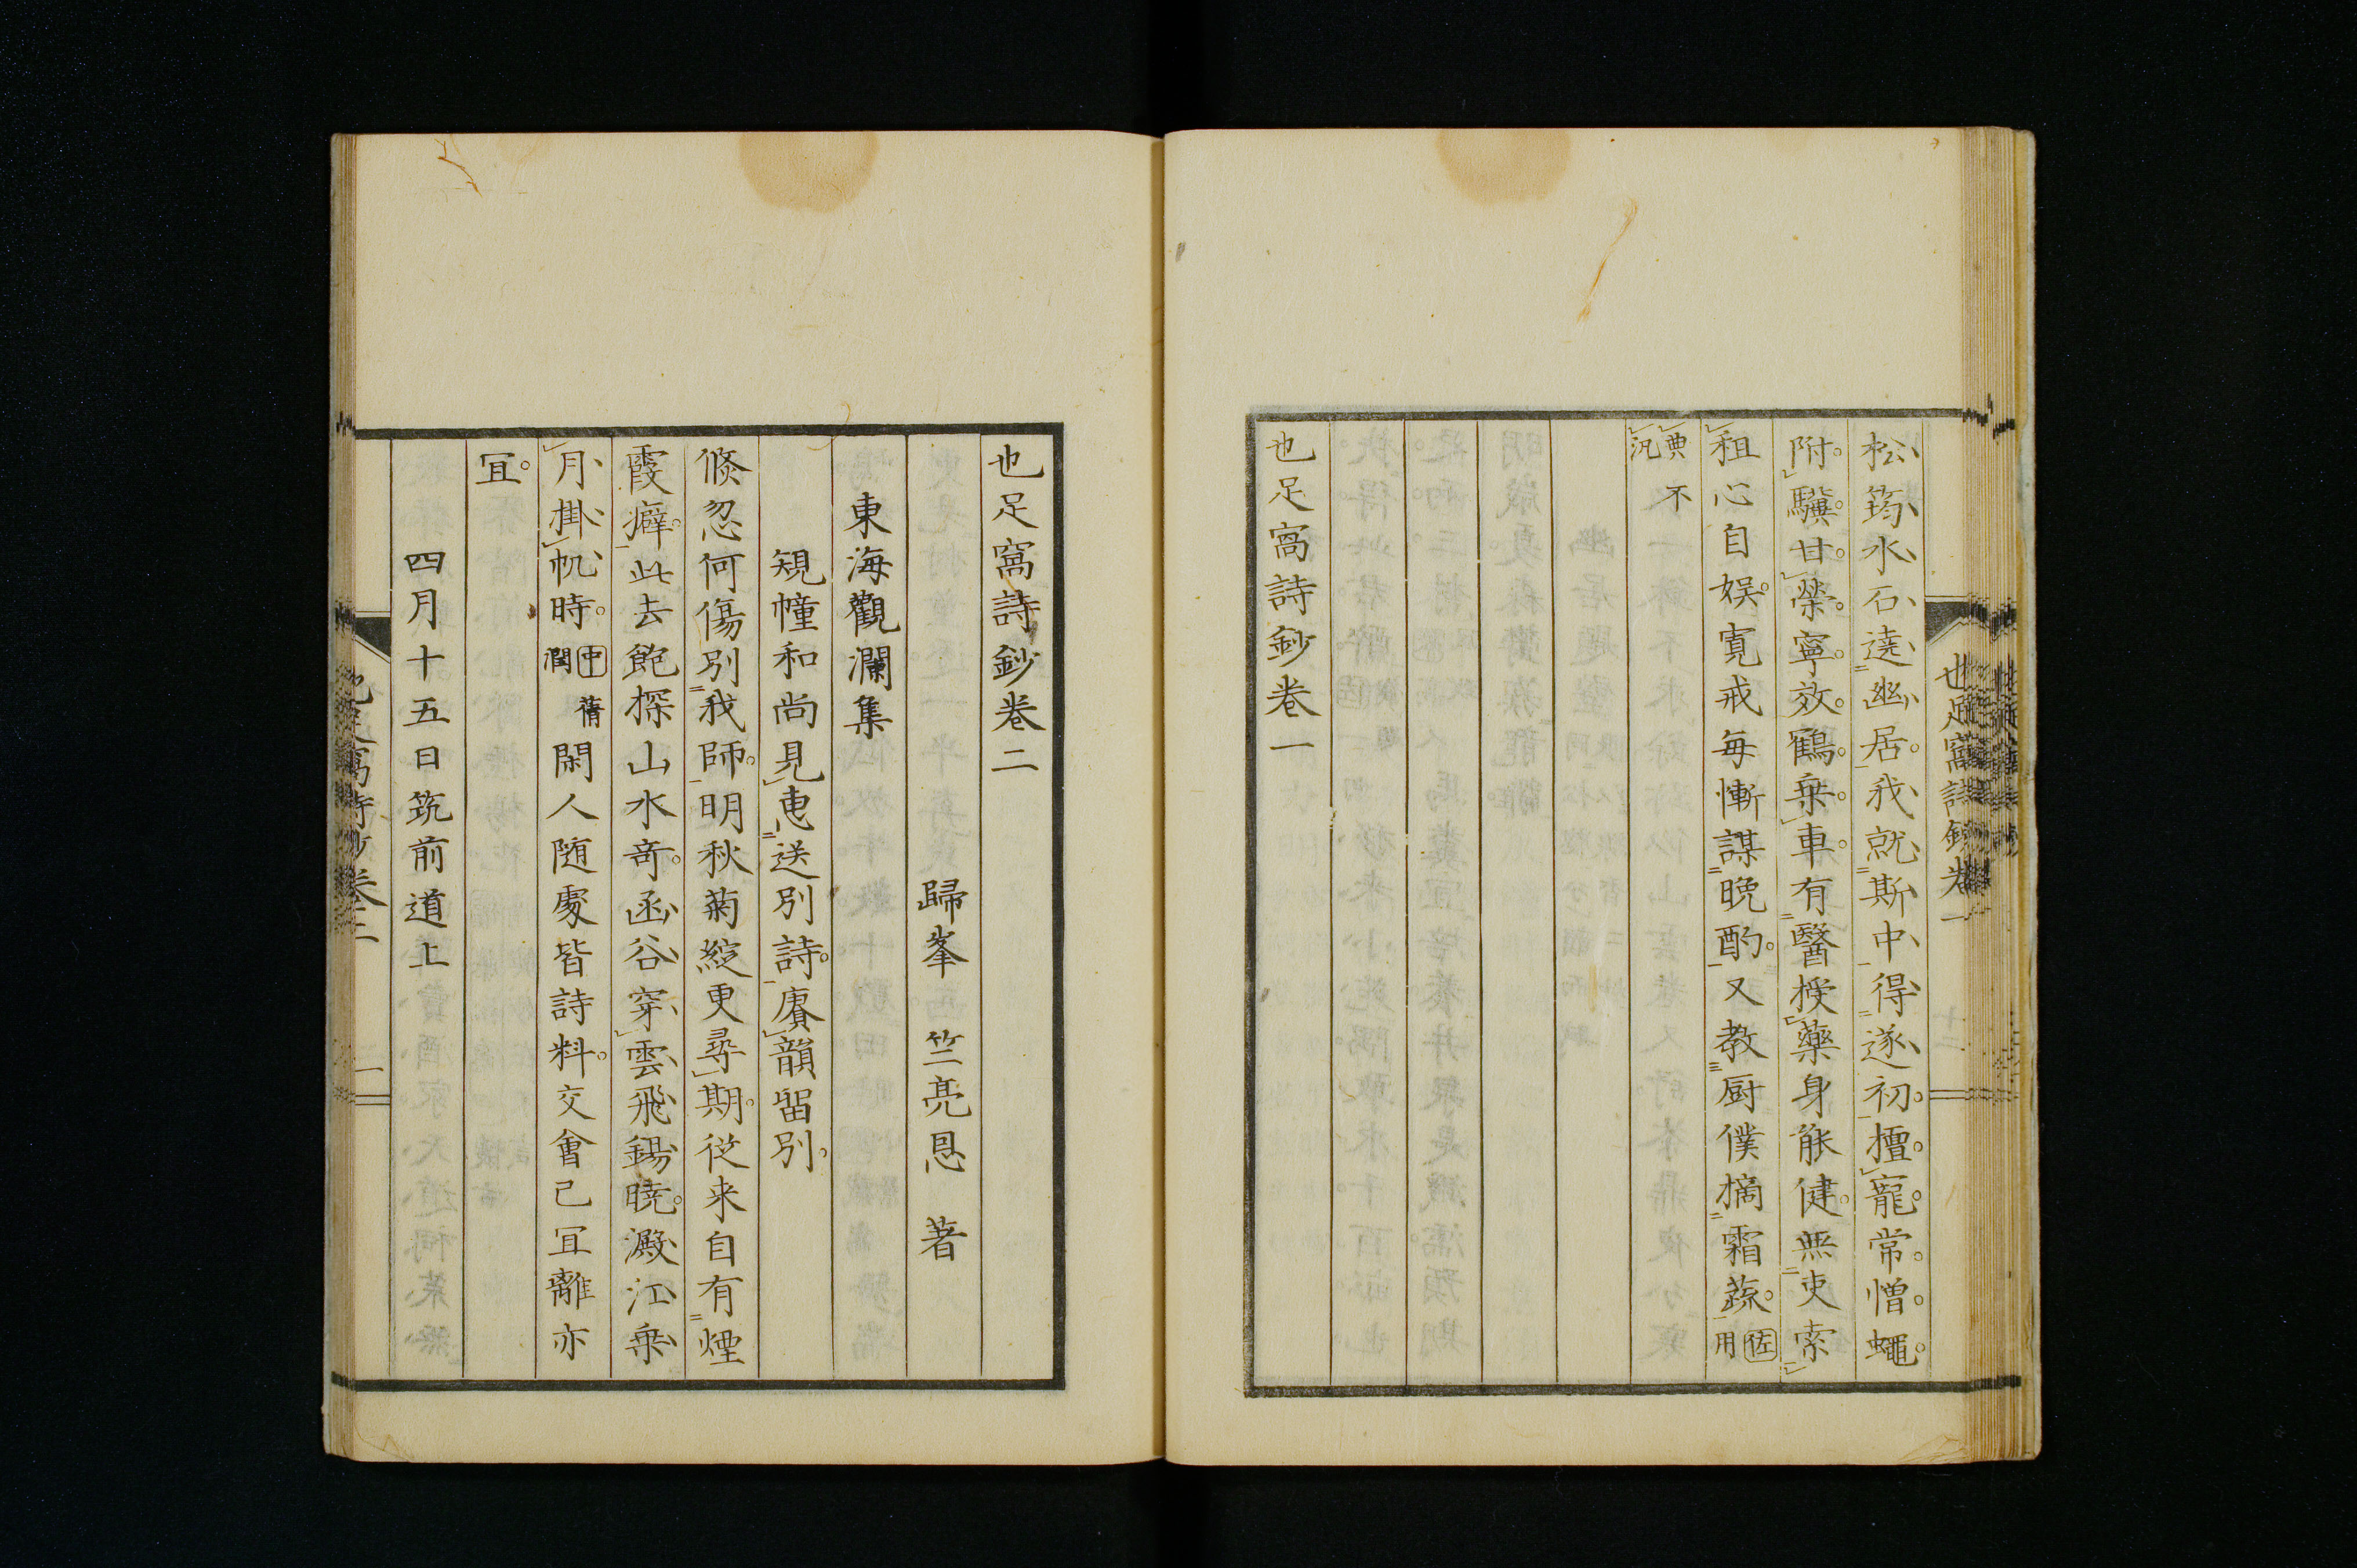 松筠水石遶幽居我就斯中得遂初擅寵常憎蠅
附驥甘榮寧效鶴乗車有醫授藥身能健無吏索
租心自娯寛戒毎慚謀晩酌又教厨僕摘霜蔬佐用
典不
汎
也足窩詩鈔卷一
也足窩詩鈔卷一
十二
也足窩詩鈔卷二
歸峯 竺亮恩 著
東海觀瀾集
規幢和尚見恵送別詩賡韻留別
倏忽何傷別我師明秋菊綻更尋期從来自有煙
霞癖此去飽探山水竒函谷穿雲飛錫暁澱江乗
月掛帆時中蒨潤閑人随處皆詩料交會已冝離亦
冝
四月十五日筑前道上
也足窩詩鈔卷二
一